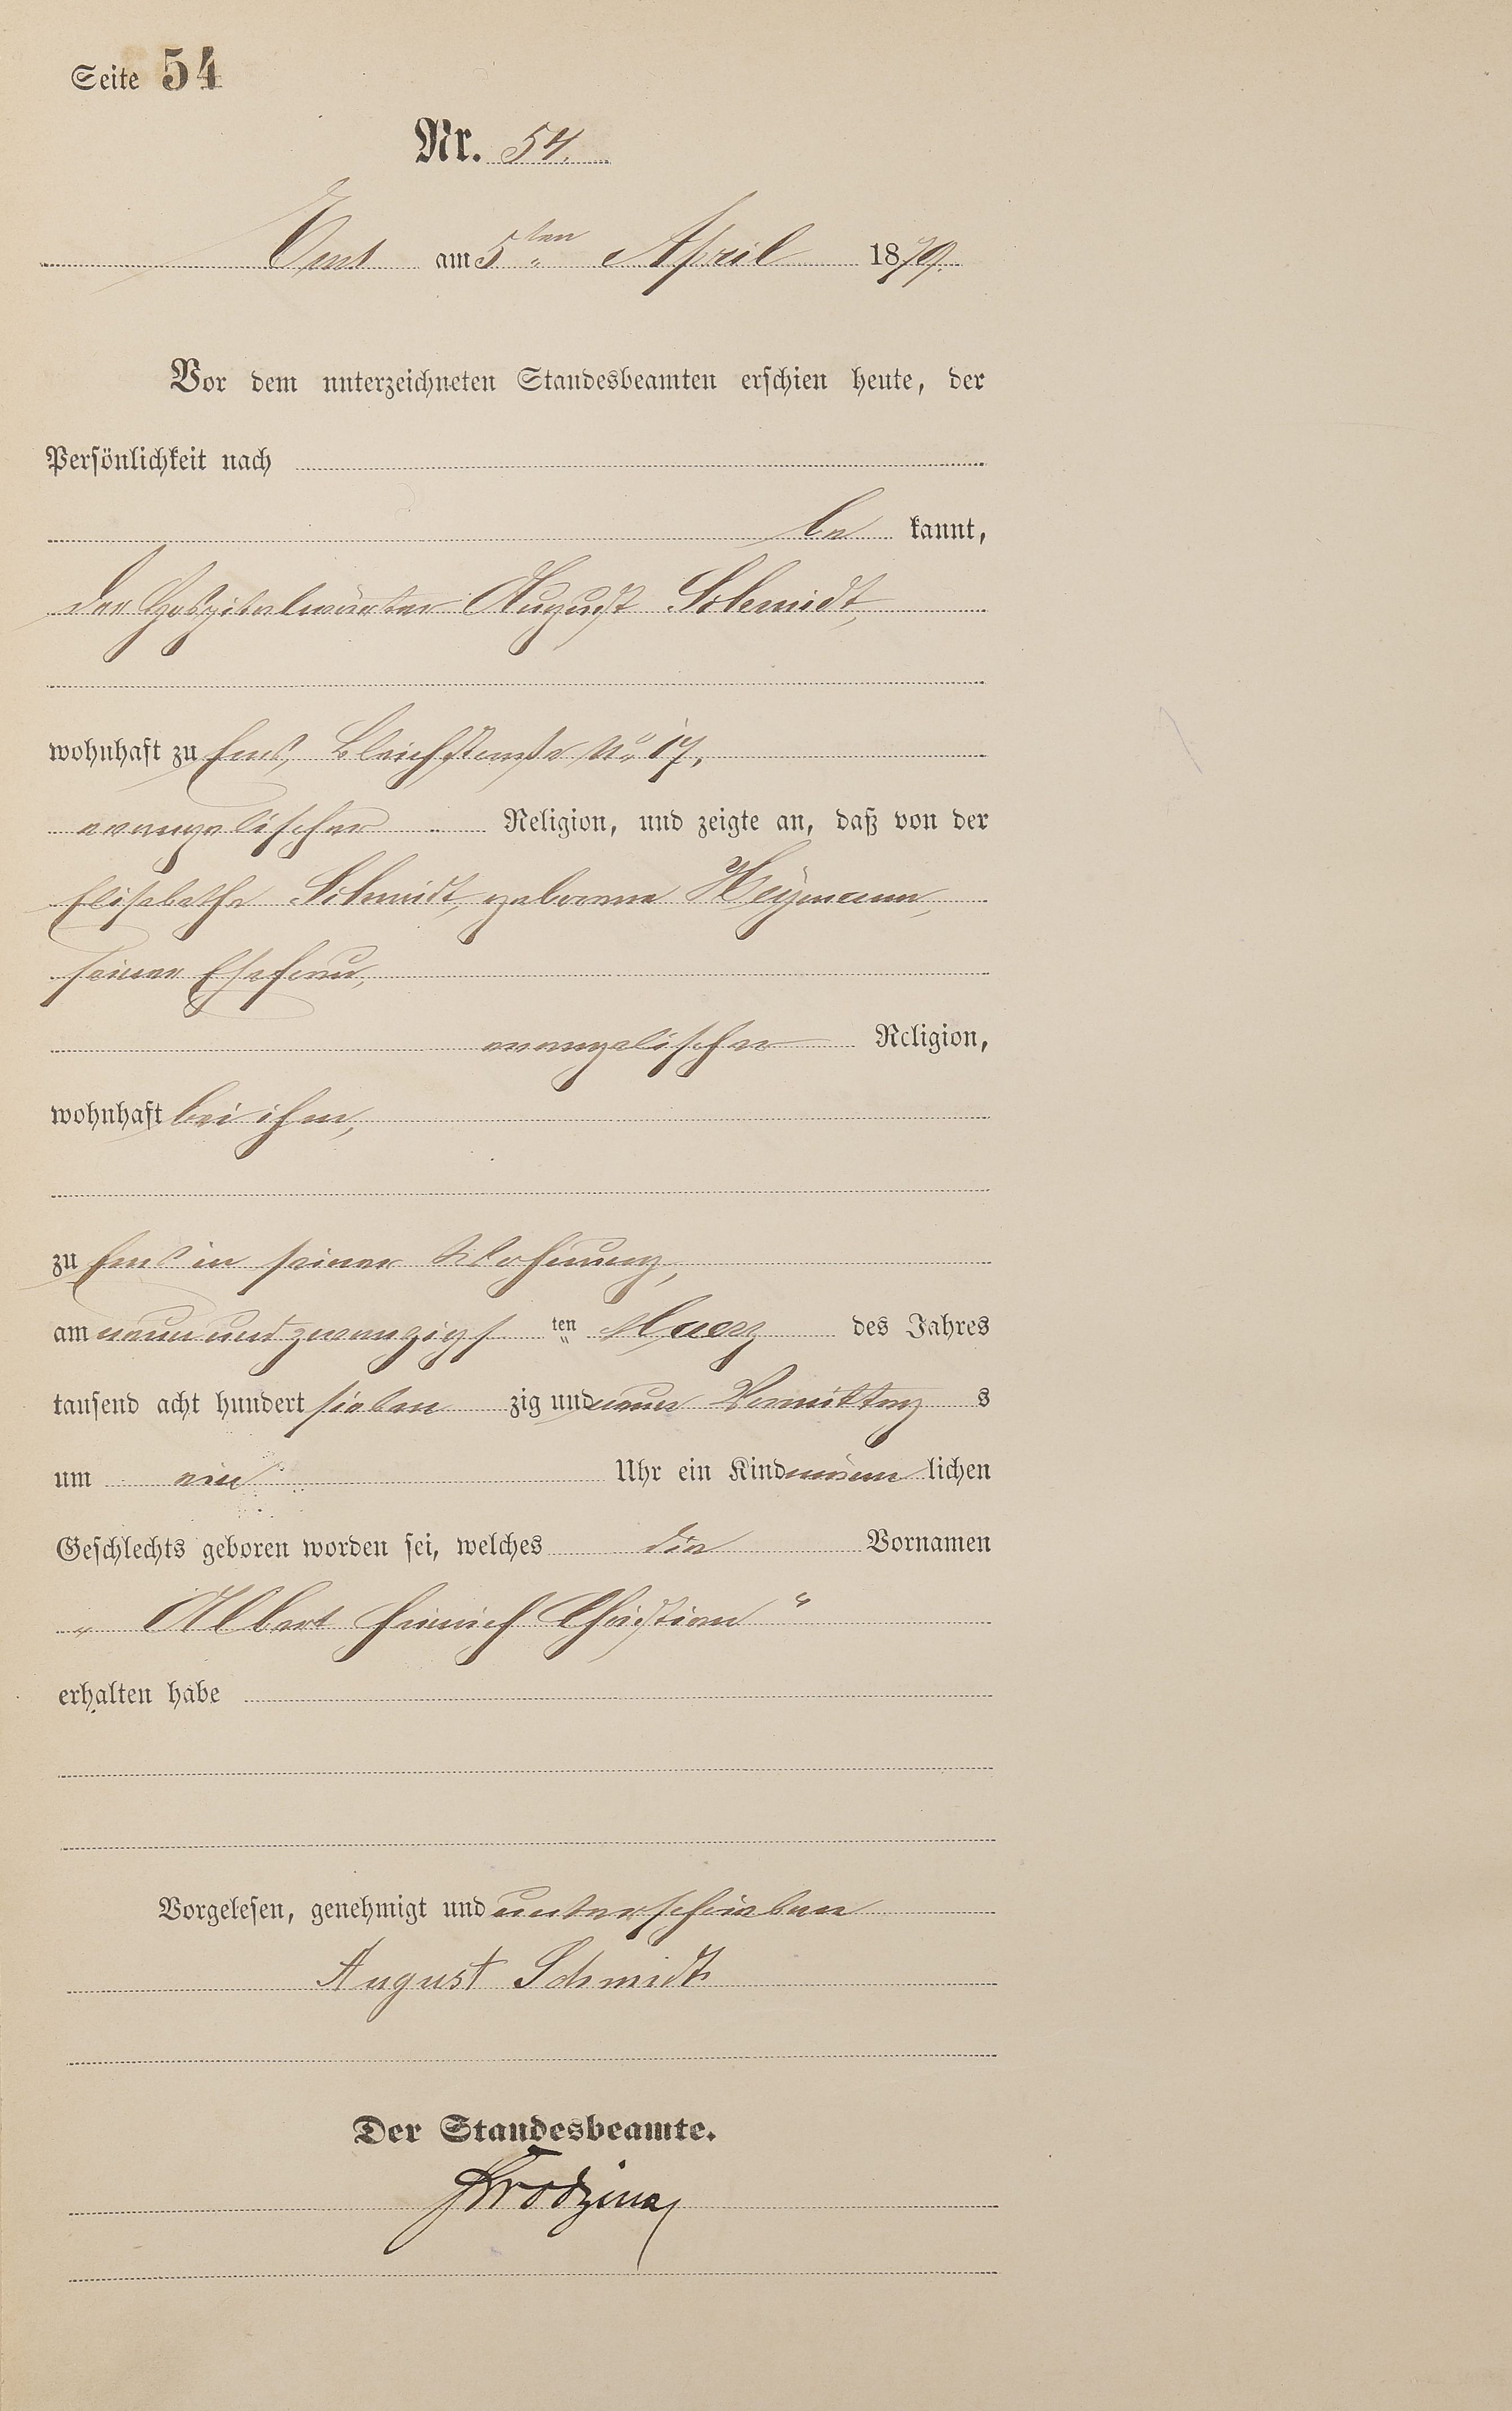 Seite 54
Nr. 54.
Ems am 5ten April 1879.
Vor dem unterzeichneten Standesbeamten erschien heute, der
Persönlichkeit nach
be kannt,
der Hospitalwärter August Schmidt,
wohnhaft zu Ems, Bleichstraße No 17,
evangelischer Religion, und zeigte an, daß von der
Elisabethe Schmidt, geborene Heymann,
seiner Ehefrau,
evangelischer Religion,
wohnhaft bei ihm,
zu Ems in seiner Wohnung,
am neunundzwanzigs ten Maerz des Jahres
tausend acht hundert sieben zig und neun Vormittag s
um ein Uhr ein Kind männ lichen
Geschlechts geboren worden sei, welches die Vornamen
„ Albert Heinrich Christian “
erhalten habe
Vorgelesen, genehmigt und unterschrieben
August Schmidt
Der Standesbeamte.